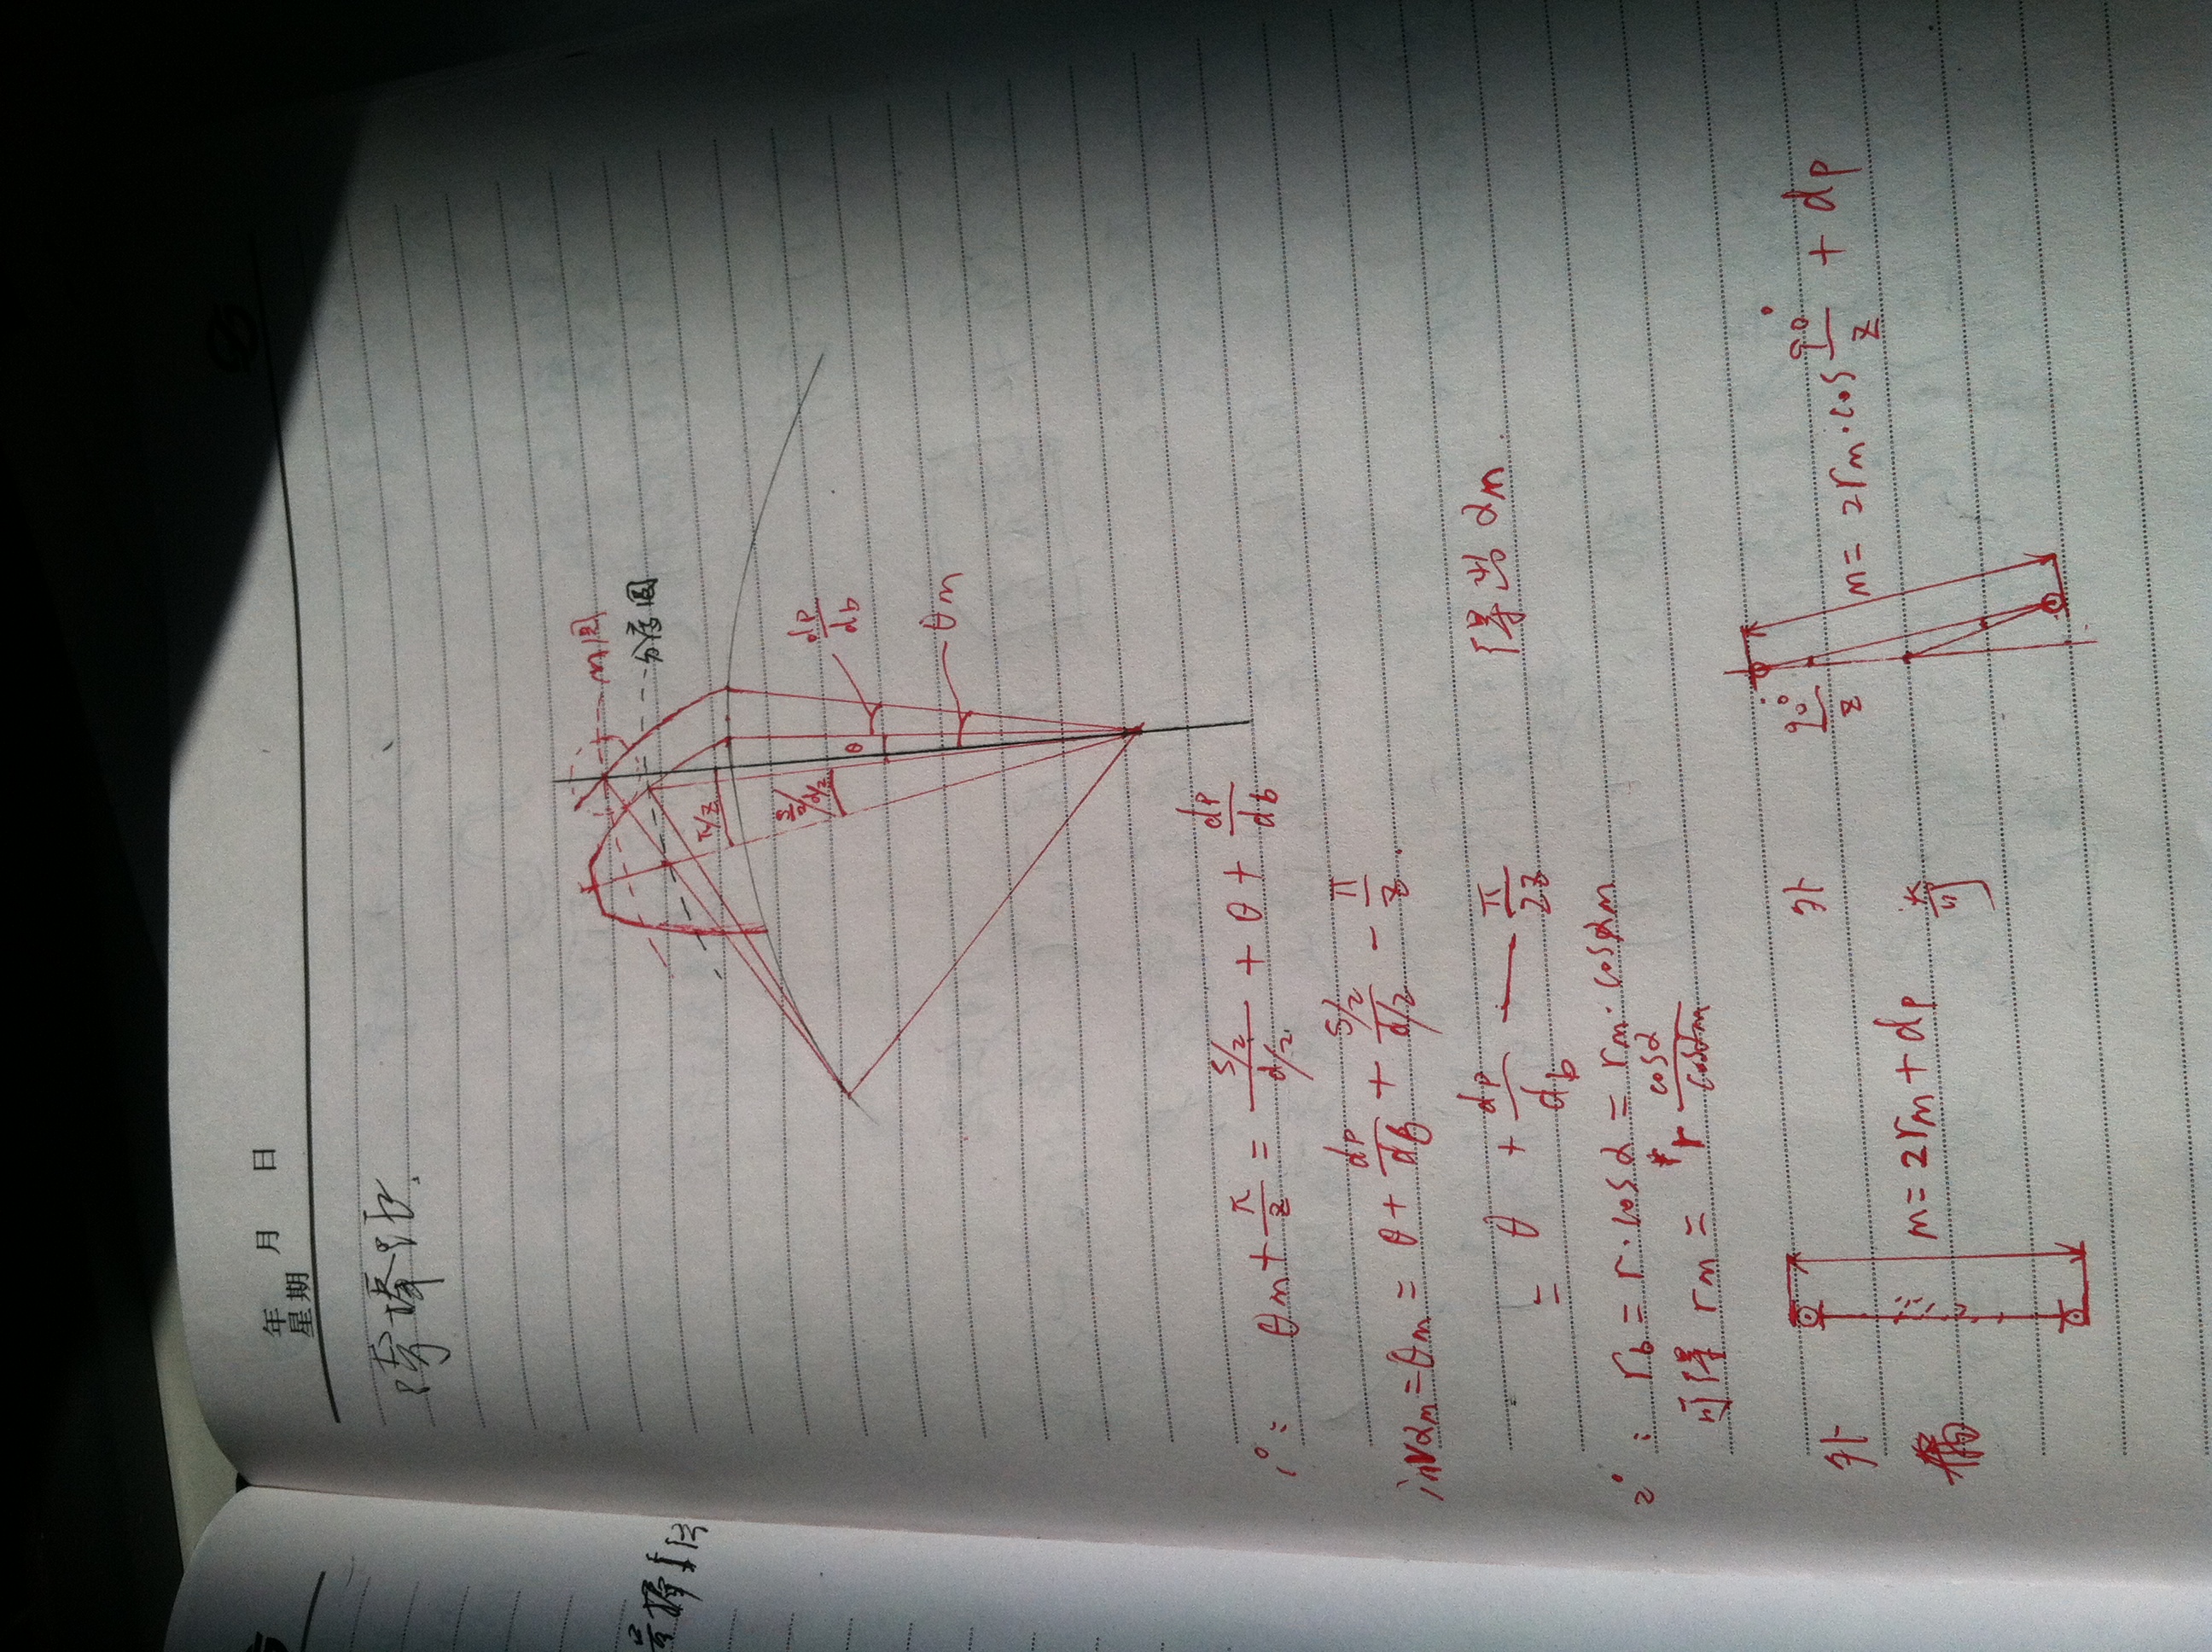 年 月 日
星期
跨棒距.
m圆
分度圆
π/z
θ
dp/db
(s/2)/(d/2)
θm
1°: θm + π/z = (s/2)/(d/2) + θ + dp/db
invαm = θm = θ + dp/db + (s/2)/(d/2) - π/z.
= θ + dp/db — π/2z 得出 αm
2°: rb = r·cosα = rm·cosαm
可得 rm = r cosα/cosαm
外 外
偶 奇
m = 2rm + dp
90°/z
m = 2rm·cos 90°/z + dp